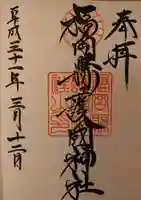 奉拝
福岡縣護国神社
平成三十一年三月十二日